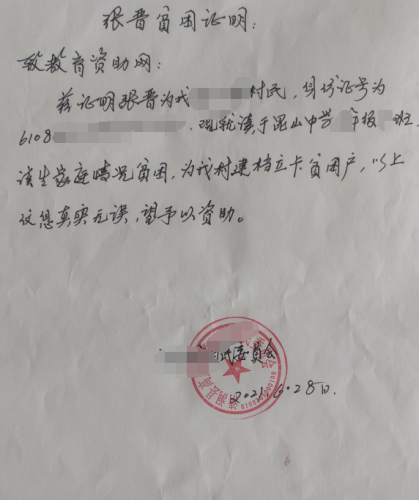 张晋贫困证明：
致教育资助网：
兹证明张晋为我 村民，身份证号为
6108 ，现就读于昆山中学 年级 班
该生家庭情况贫困，为我村建档立卡贫困户，以上
信息真实无误，望予以资助。
委员会
2021.6.28日